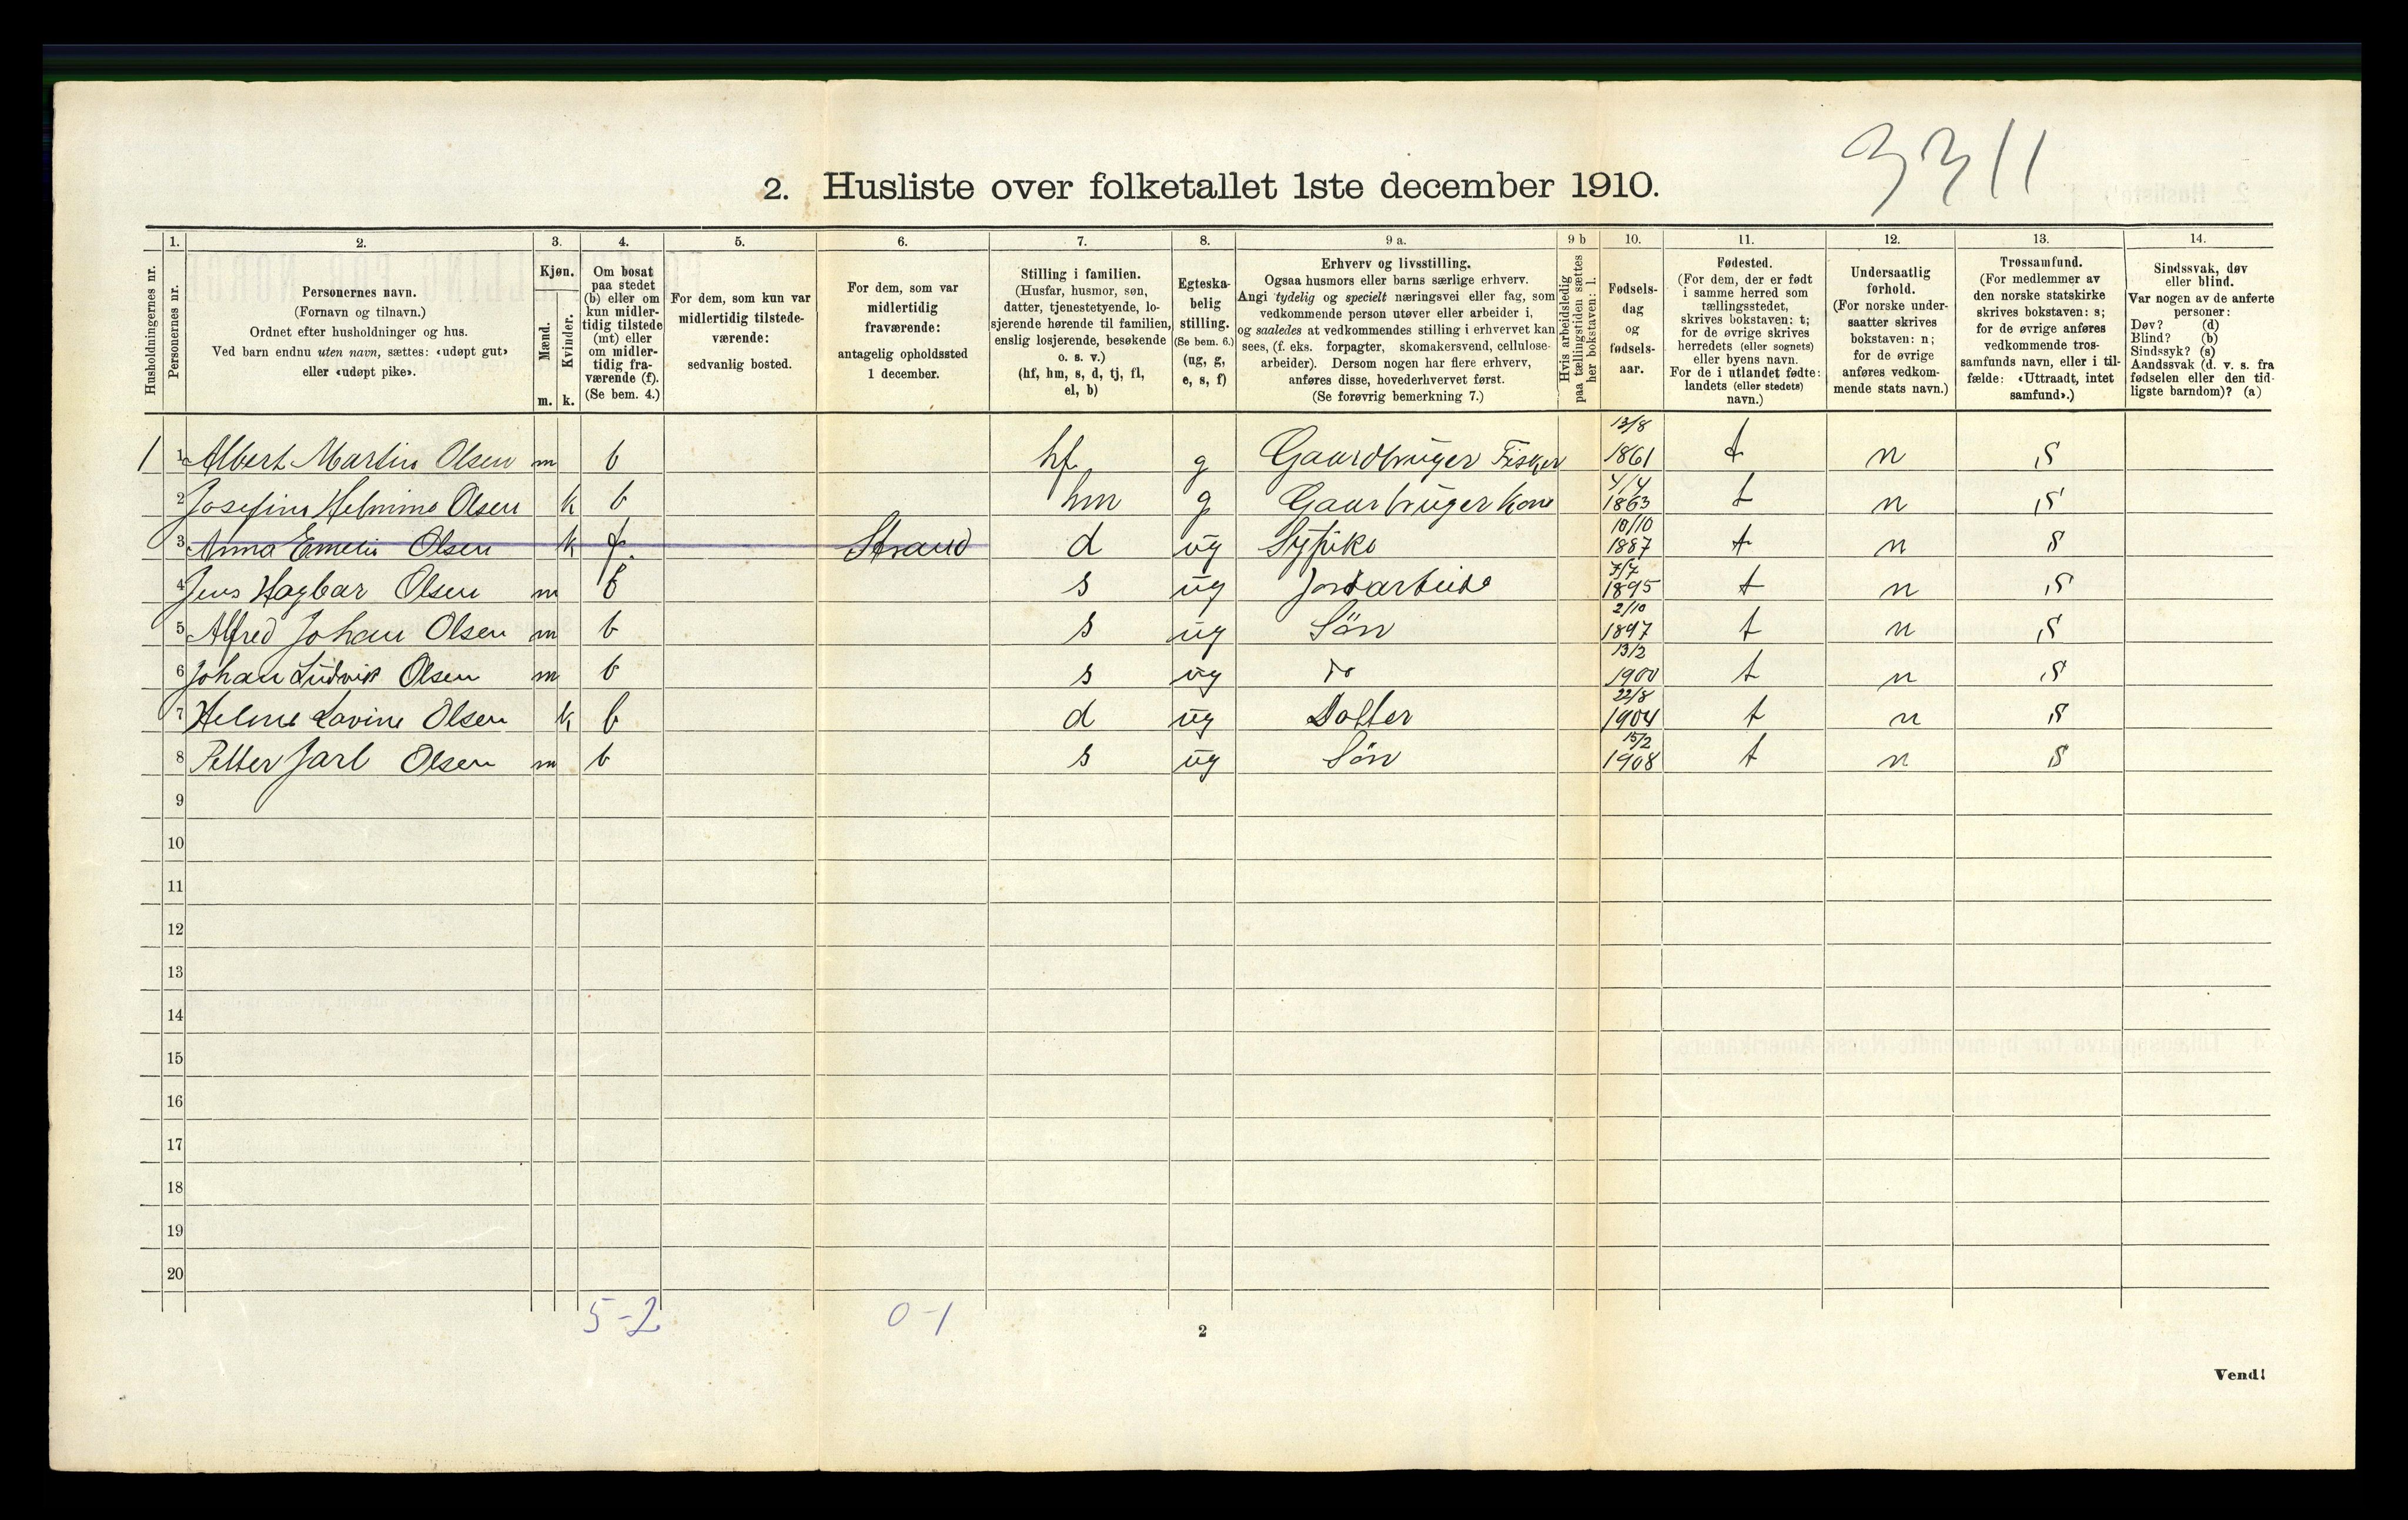 3311
2. Husliste over folketallet 1ste december 1910.
Husholdningernes nr.
1.
Personernes nr.
2.
Personernes navn.
(Fornavn og tilnavn.)
Ordnet efter husholdninger og hus.
Ved barn endnu uten navn, sættes: «udøpt gut»
eller «udøpt pike».
3.
Kjøn.
Mænd.
Kvinder.
m. k.
4.
Om bosat
paa stedet
(b) eller om
kun midler-
tidig tilstede
(mt) eller
om midler-
tidig fra-
værende (f).
(Se bem. 4.)
5.
For dem, som kun var
midlertidig tilstede-
værende:
sedvanlig bosted.
6.
For dem, som var
midlertidig
fraværende:
antagelig opholdssted
1 december.
7.
Stilling i familien.
(Husfar, husmor, søn,
datter, tjenestetyende, lo-
sjerende hørende til familien,
enslig losjerende, besøkende
o. s. v.)
(hf, hm, s, d, tj, fl,
el, b)
8.
Egteska-
belig
stilling.
(Se bem. 6.)
(ug, g,
e, s, f)
9 a.
Erhverv og livsstilling.
Ogsaa husmors eller barns særlige erhverv.
Angi tydelig og specielt næringsvei eller fag, som
vedkommende person utøver eller arbeider i,
og saaledes at vedkommendes stilling i erhvervet kan
sees, (f. eks. forpagter, skomakersvend, cellulose-
arbeider). Dersom nogen har flere erhverv,
anføres disse, hovederhvervet først.
(Se forøvrig bemerkning 7.)
9 b
Hvis arbeidsledig
paa tællingstiden sættes
her bokstaven: l.
10.
Fødsels-
dag
og
fødsels-
aar.
11.
Fødested.
(For dem, der er født
i samme herred som
tællingsstedet,
skrives bokstaven: t;
for de øvrige skrives
herredets (eller sognets)
eller byens navn.
For de i utlandet fødte:
landets (eller stedets)
navn.)
12.
Undersaatlig
forhold.
(For norske under-
saatter skrives
bokstaven: n;
for de øvrige
anføres vedkom-
mende stats navn.)
13.
Trossamfund.
(For medlemmer av
den norske statskirke
skrives bokstaven: s;
for de øvrige anføres
vedkommende tros-
samfunds navn, eller i til-
fælde: «Uttraadt, intet
samfund».)
14.
Sindssvak, døv
eller blind.
Var nogen av de anførte
personer:
Døv? (d)
Blind? (b)
Sindssyk? (s)
Aandssvak (d. v. s. fra
fødselen eller den tid-
ligste barndom)? (a)
1 1 Albert Martin Olsen m b hf g Gaardbruger Fisker 13/8 1861 t n s
2 Josefine Helmine Olsen k b hm g Gaarbruger Kone 4/4 1863 t n s
3 Anna Emelie Olsen k f. Strand d ug Sypike 10/10 1887 t n s
4 Jens Hagbar Olsen m b s ug Jordarbeide 7/7 1895 t n s
5 Alfred Johan Olsen m b s ug Sön 2/10 1897 t n s
6 Johan Ludvik Olsen m b s ug do 13/2 1900 t n s
7 Helene Lovine Olsen k b d ug Datter 22/8 1904 t n s
8 Petter Jarl Olsen m b s ug Sön 15/2 1908 t n s
9
10
11
12
13
14
15
16
17
18
19
20
5-2 0-1
2
Vend!